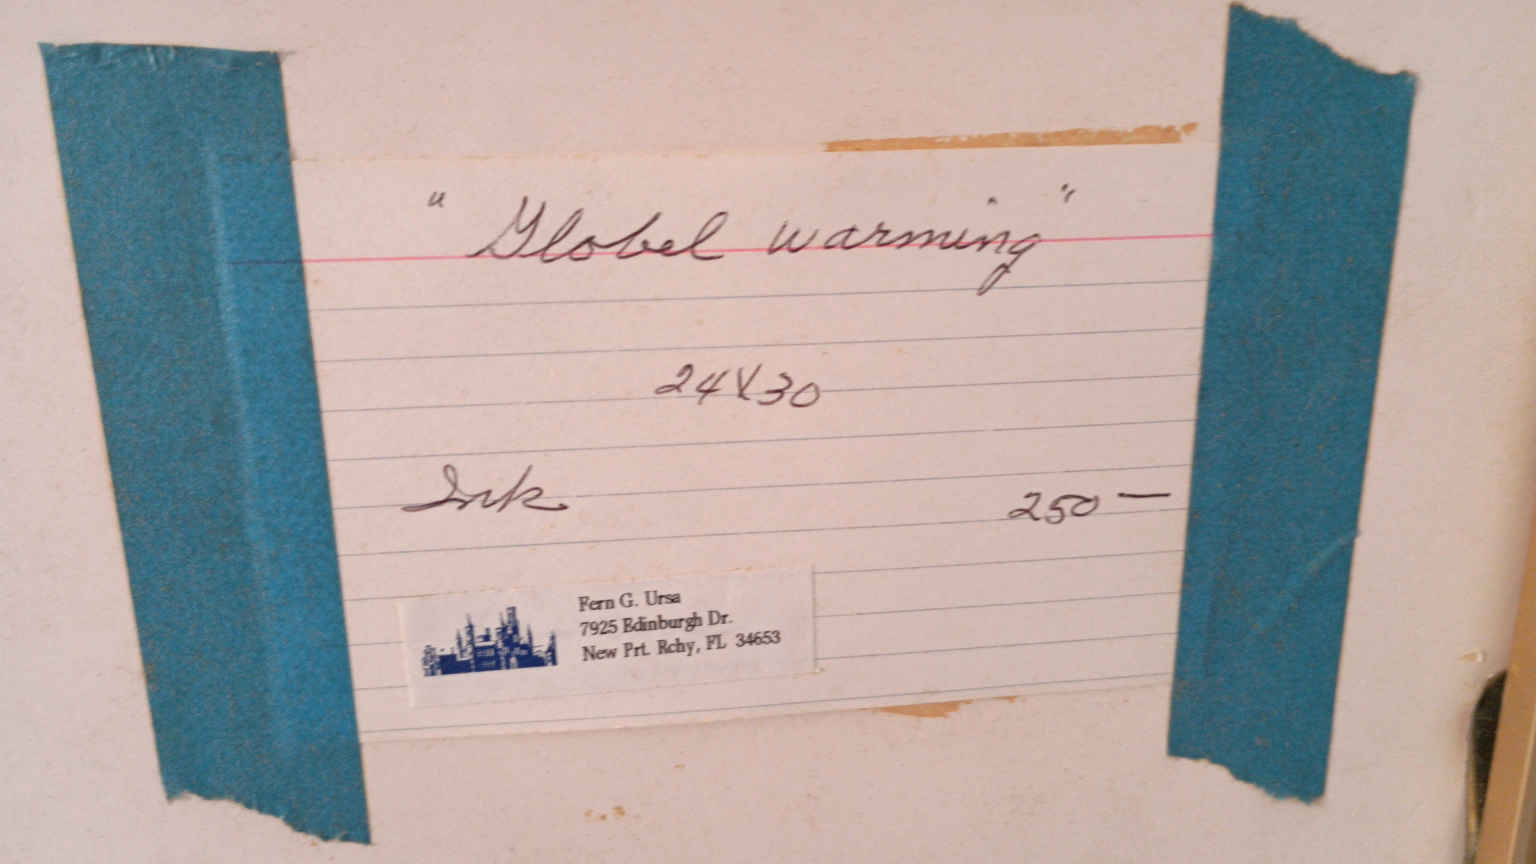 "Globel warming"
24X30
Ink
250—
Fern G. Ursa
7925 Edinburgh Dr.
New Prt. Rchy, FL 34653